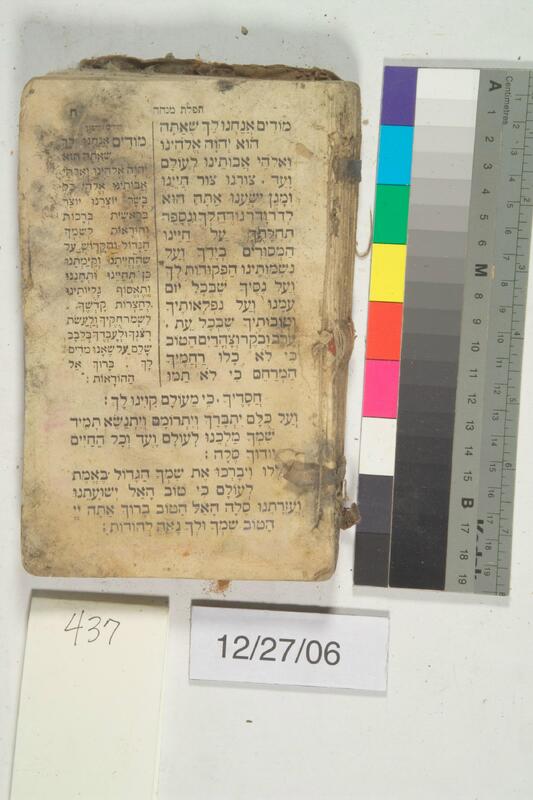 תפלת מנחה
ח
מודים אנחנו לך שאתה
הוא יהוה אלהינו
ואלהי אבותינו לעולם
ועד. צורנו צור חיינו
ומגן ישענו אתה הוא
לדור ודור נודה לך ונספר
תהלתך על חיינו
המסורים בידך ועל
נשמותינו הפקודות לך
ועל נסיך שבכל יום
עמנו ועל נפלאותיך
וטובותיך שבכל עת.
ערב ובקר וצהרים הטוב
כי לא כלו רחמיך
המרחם כי לא תמו
מודים אנחנו לך
שאתה הוא
יהוה אלהינו ואלהי
אבותינו אלהי כל
בשר יוצרנו יוצר
בראשית ברכות
והודאות לשמך
הגדול והקדוש על
שהחייתנו וקימתנו
כן תחיינו ותחננו
ותאסוף גליותינו
לחצרות קדשך.
לשמר חקיך ולעשת
רצנך ולעבדך בלבב
שלם על שאנו מדים
לך. ברוך אל
ההודאות:
חסדיך. כי מעולם קוינו לך:
ועל כלם יתברך ויתרומם ויתנשא תמיד
שמך מלכנו לעולם ועד וכל החיים
יודוך סלה:
ויברכו את שמך הגדול באמת
לעולם כי טוב האל ישועתנו
ועזרתנו סלה האל הטוב ברוך אתה יי
הטוב שמך ולך נאה להודות:
Centimetres
A 1 2 3 4 5 6 M 8 9 10 11 12 13 14 15 B 17 18 19
437
12/27/06